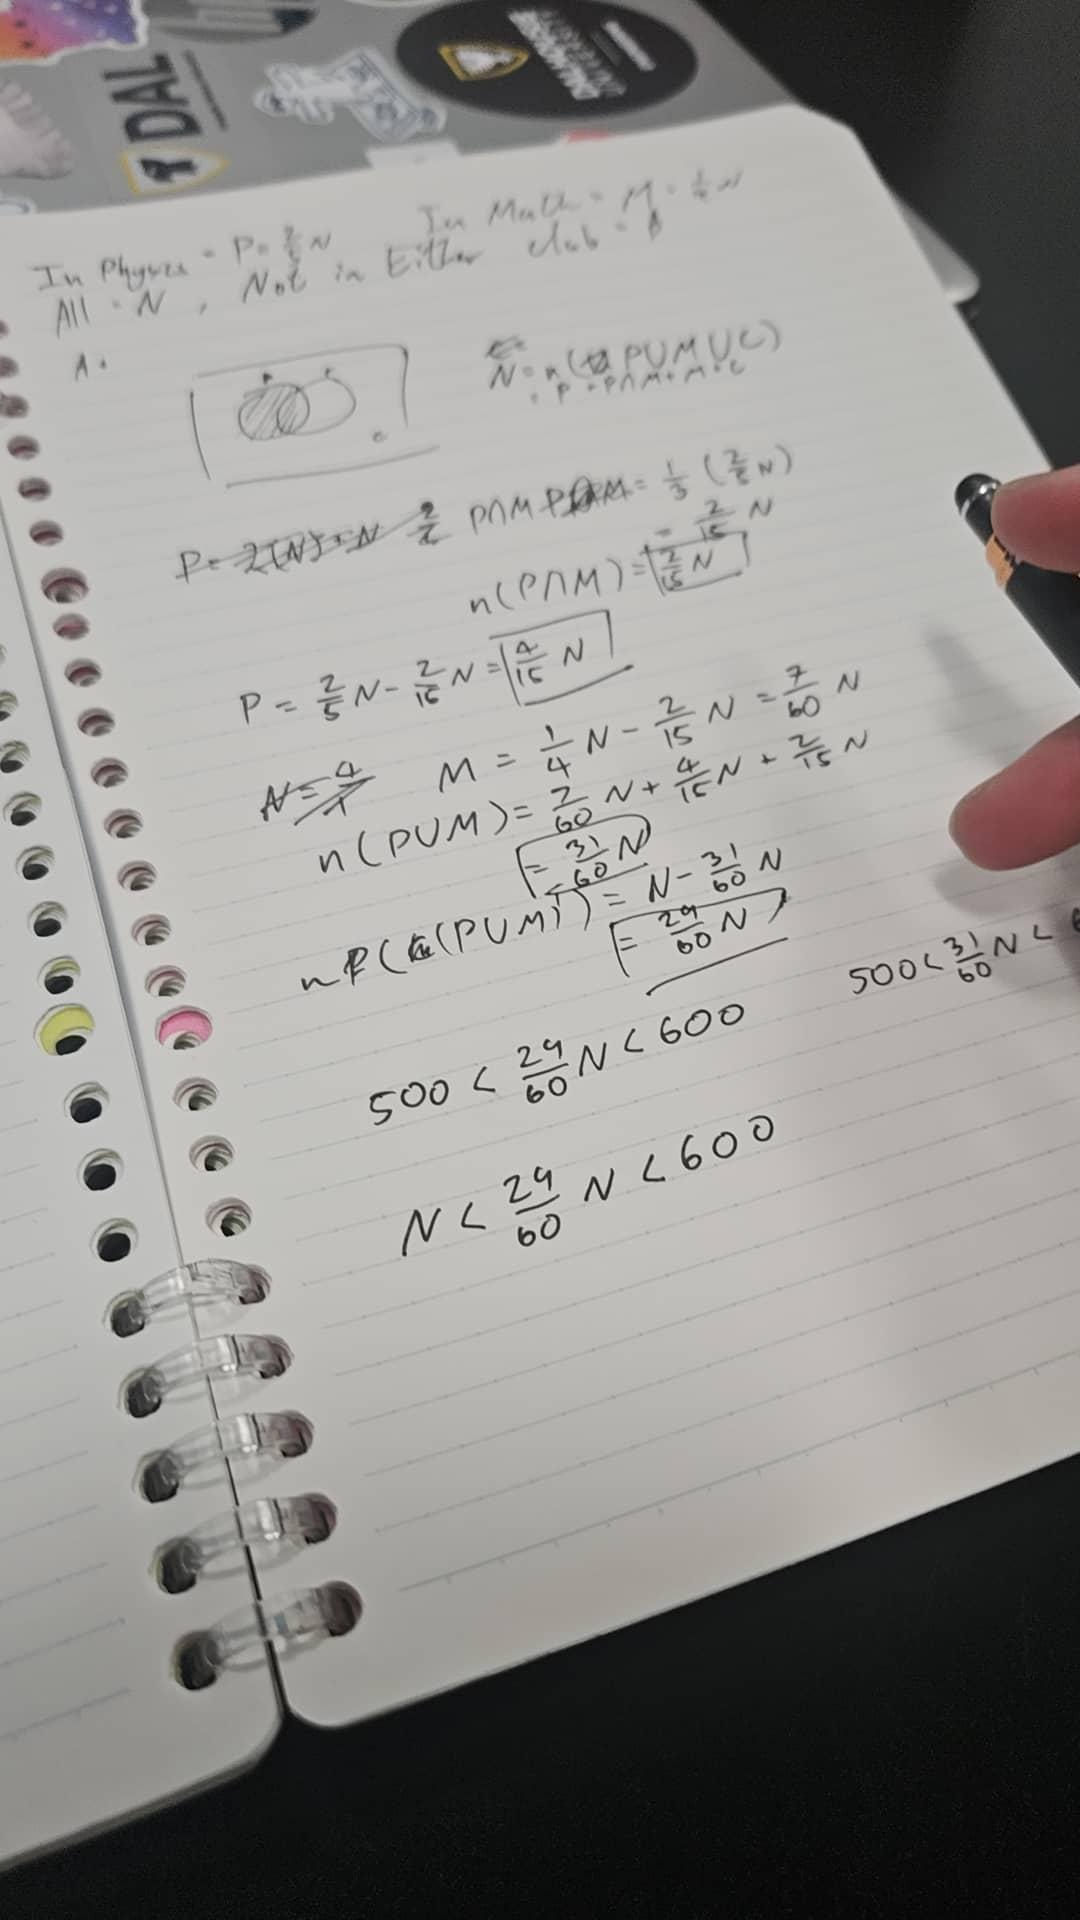 DAL
DALHOUSIE
In Physics = P = 2/5 N In Math = M = 1/4 N
All = N , Not in Either club =
A.
N = n( PUMUC)
= P + P∩M + M + C
P∩M = 1/3 (2/5 N)
= 2/15 N
n(P∩M) = 2/15 N
P = 2/5 N - 2/15 N = 4/15 N
M = 1/4 N - 2/15 N = 7/60 N
n(PUM) = 7/60 N + 4/15 N + 2/15 N
= 31/60 N
n((PUM)') = N - 31/60 N
= 29/60 N
500 < 31/60 N <
500 < 29/60 N < 600
N < 29/60 N < 600